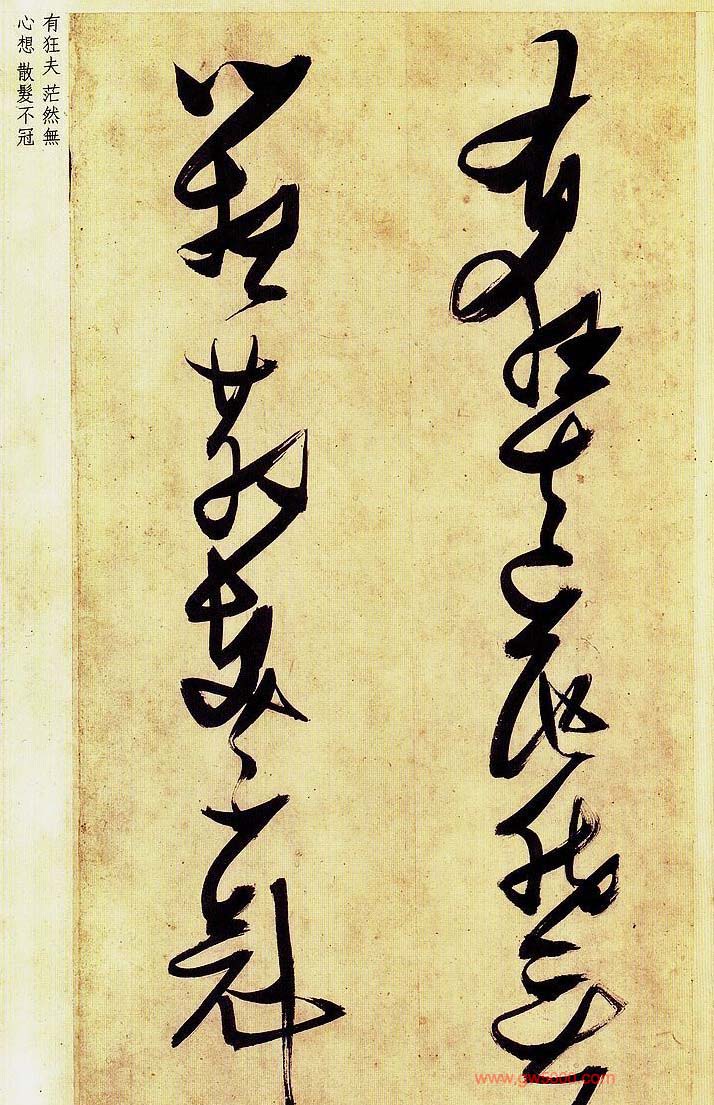 有狂夫茫然無
心想散髮不冠
有狂夫 茫然無
心想 散髮不冠